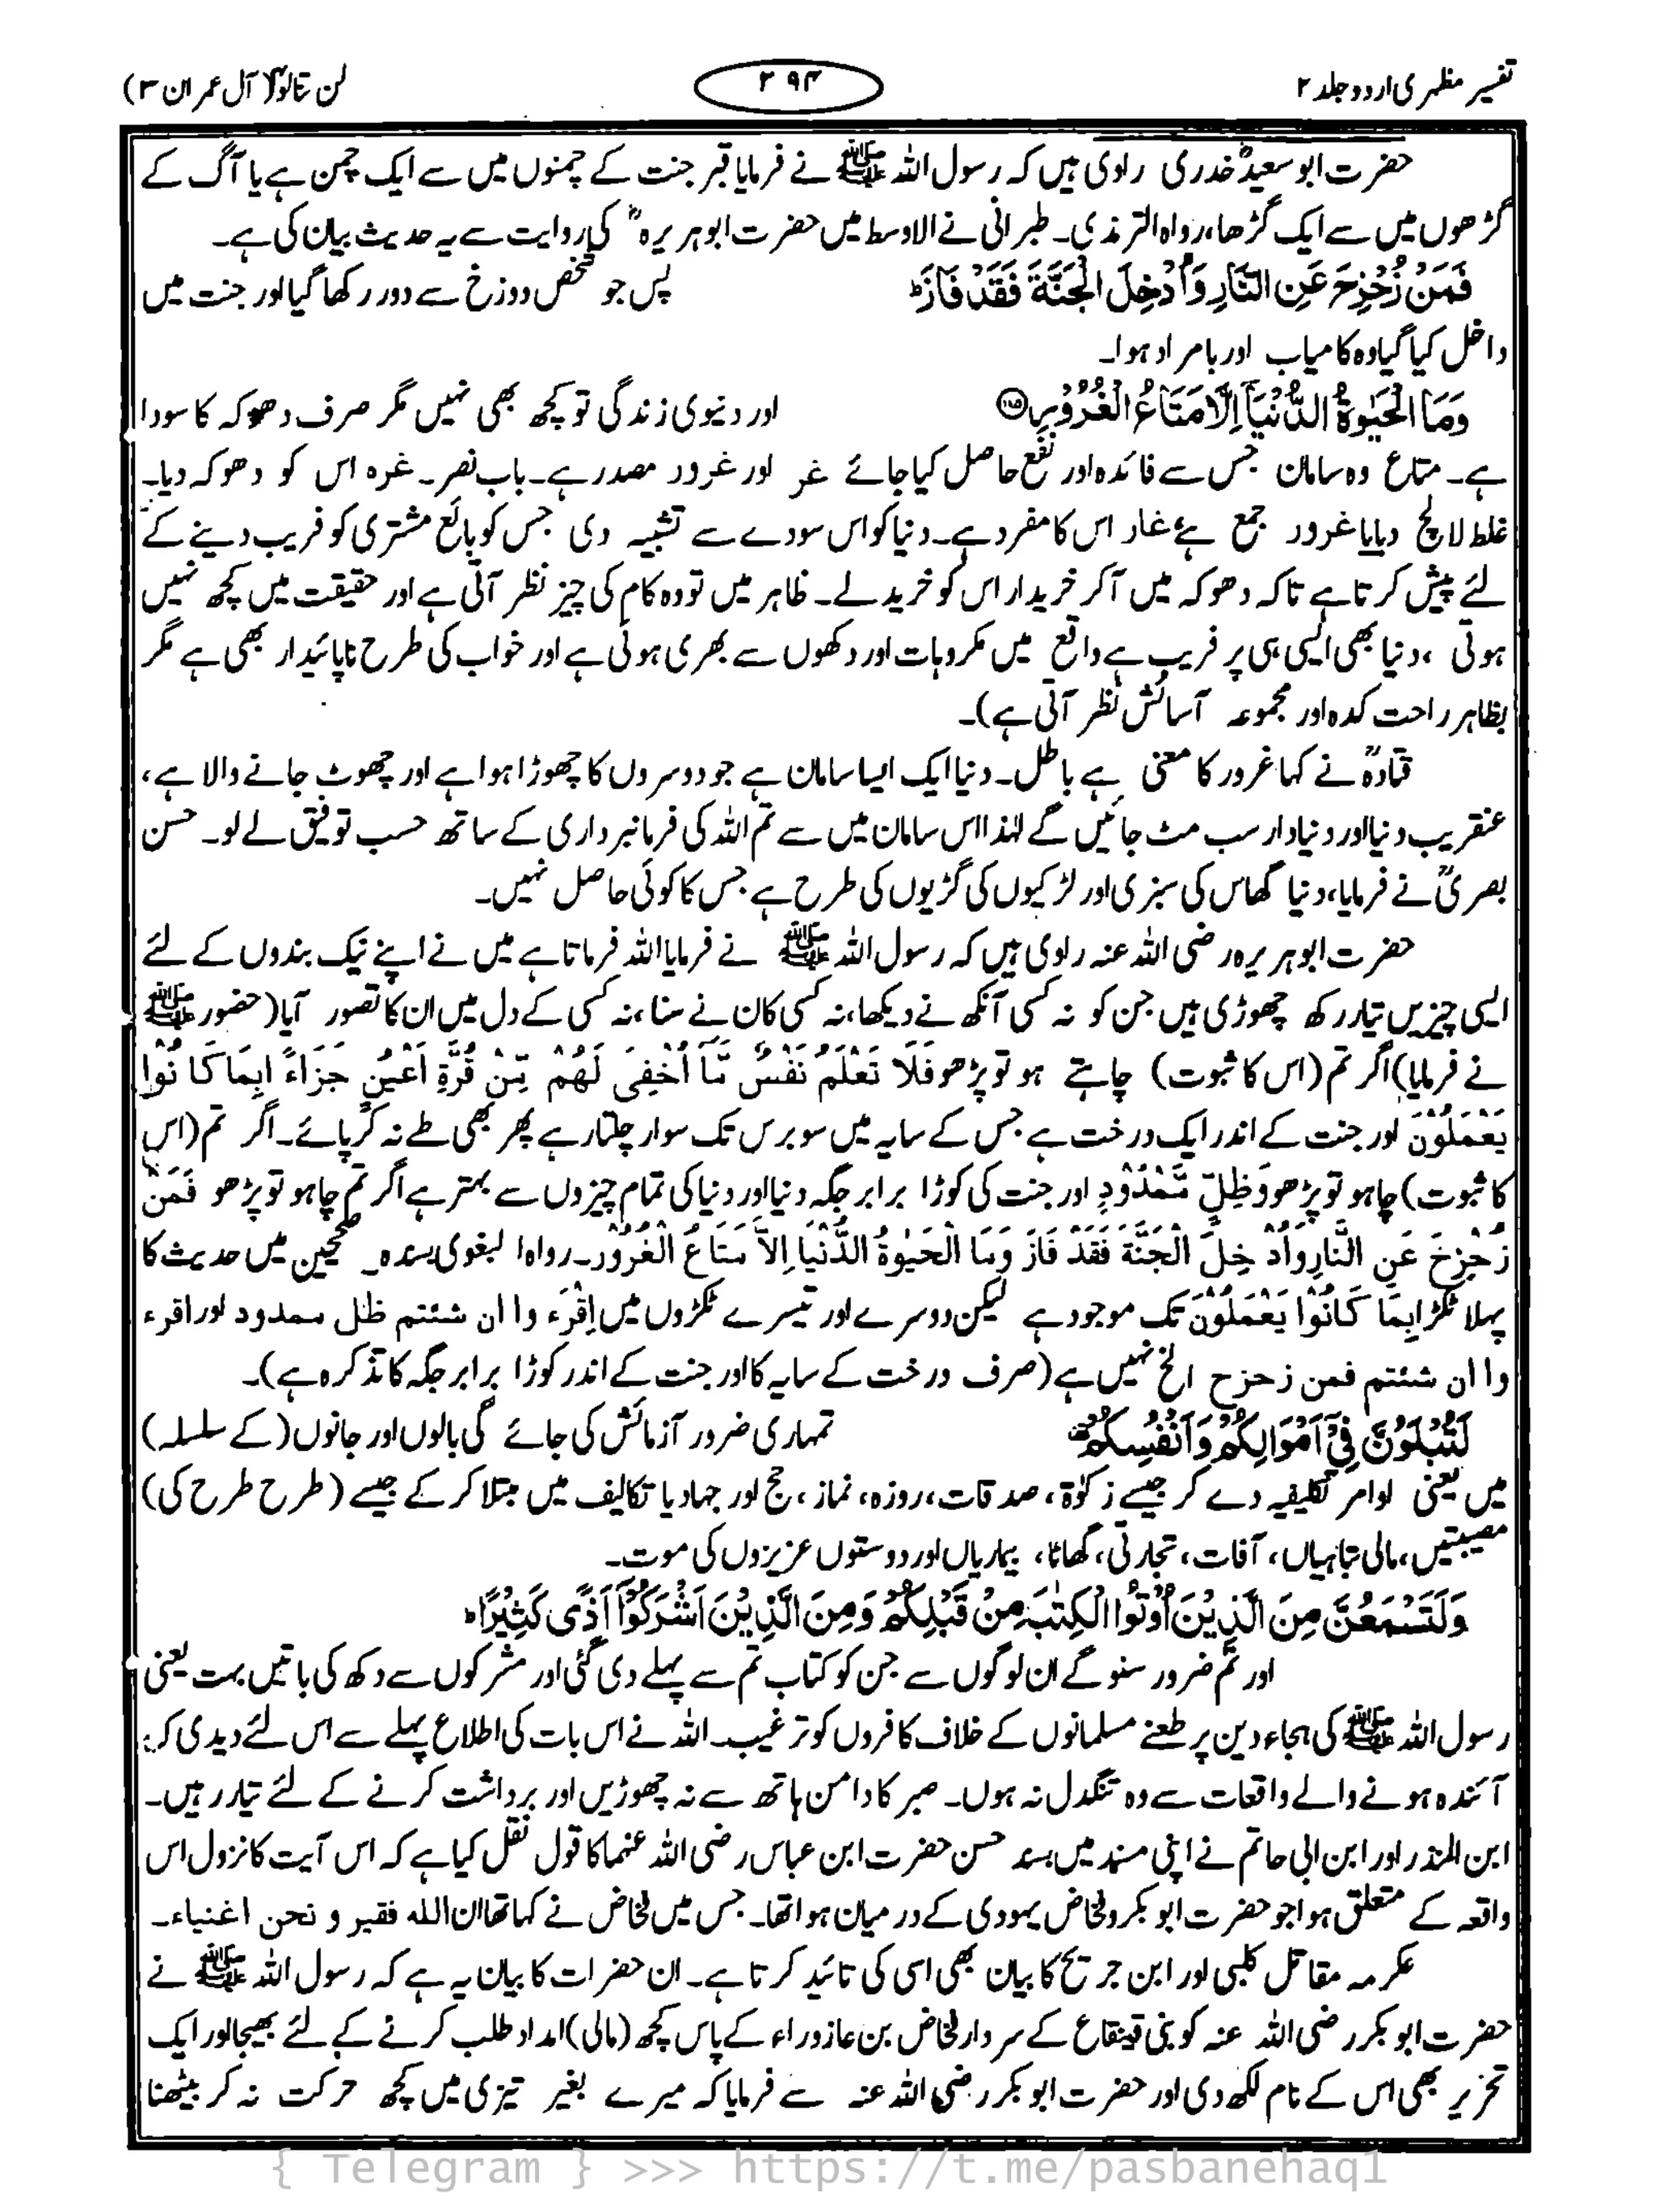 تفسیر مظہری اردو جلد ۲
۲۹۴
لن تنالوا (آل عمران ۳)
حضرت ابو سعیدؓ خدری راوی ہیں کہ رسول اللہ ﷺ نے فرمایا قبر جنت کے چمنوں میں سے ایک چمن ہے یا آگ کے
گڑھوں میں سے ایک گڑھا، رواہ الترمذی۔ طبرانی نے الاوسط میں حضرت ابو ہریرہؓ کی روایت سے یہ حدیث بیان کی ہے۔
فَمَنْ زُحْزِحَ عَنِ النَّارِ وَاُدْخِلَ الْجَنَّةَ فَقَدْ فَازَ ؕ پس جو شخص دوزخ سے دور رکھا گیا اور جنت میں
داخل کیا گیا وہ کامیاب اور بامراد ہوا۔
وَمَا الْحَيٰوةُ الدُّنْيَآ اِلَّا مَتَاعُ الْغُرُوْرِ ۝۱۸۵ اور دنیوی زندگی تو کچھ بھی نہیں مگر صرف دھوکہ کا سودا
ہے۔ متاع وہ سامان جس سے فائدہ اور نفع حاصل کیا جائے غر اور غرور مصدر ہے۔ باب نصر۔ غرہ اس کو دھوکہ دیا۔
غلط لالچ دیا یا غرور جمع ہے غار اس کا مفرد ہے۔ دنیا کو اس سودے سے تشبیہ دی جس کو بائع مشتری کو فریب دینے کے
لئے پیش کرتا ہے تاکہ دھوکہ میں آکر خریدار اس کو خرید لے۔ ظاہر میں تو وہ کام کی چیز نظر آتی ہے اور حقیقت میں کچھ نہیں
ہوتی، دنیا بھی ایسی ہی پر فریب ہے واقع میں مکروہات اور دکھوں سے بھری ہوئی ہے اور خواب کی طرح ناپائیدار بھی ہے مگر
بظاہر راحت کدہ اور مجموعہ آسائش نظر آتی ہے)۔
قتادہؒ نے کہا غرور کا معنی ہے باطل۔ دنیا ایک ایسا سامان ہے جو دوسروں کا چھوڑا ہوا ہے اور چھوٹ جانے والا ہے،
عنقریب دنیا اور دنیا دار سب مٹ جائیں گے لہٰذا اس سامان میں سے تم اللہ کی فرمانبرداری کے ساتھ حسب توفیق لے لو۔ حسن
بصریؒ نے فرمایا، دنیا گھاس کی سبزی اور لڑکیوں کی گڑیوں کی طرح ہے جس کا کوئی حاصل نہیں۔
حضرت ابو ہریرہ رضی اللہ عنہ راوی ہیں کہ رسول اللہ ﷺ نے فرمایا اللہ فرماتا ہے میں نے اپنے نیک بندوں کے لئے
ایسی چیزیں تیار رکھ چھوڑی ہیں جن کو نہ کسی آنکھ نے دیکھا، نہ کسی کان نے سنا، نہ کسی کے دل میں ان کا تصور آیا (حضور ﷺ
نے فرمایا) اگر تم (اس کا ثبوت) چاہتے ہو تو پڑھو فَلَا تَعْلَمُ نَفْسٌ مَّآ اُخْفِیَ لَهُمْ مِّنْ قُرَّةِ اَعْیُنٍ جَزَآءً بِمَا كَانُوْا
یَعْمَلُوْنَ اور جنت کے اندر ایک درخت ہے جس کے سایہ میں سو برس تک سوار چلتا رہے پھر بھی طے نہ کر پائے۔ اگر تم (اس
کا ثبوت) چاہو تو پڑھو وَظِلٍّ مَّمْدُوْدٍ اور جنت کی کوڑا برابر جگہ دنیا اور دنیا کی تمام چیزوں سے بہتر ہے اگر تم چاہو تو پڑھو فَمَنْ
زُحْزِحَ عَنِ النَّارِ وَاُدْخِلَ الْجَنَّةَ فَقَدْ فَازَ وَمَا الْحَیٰوةُ الدُّنْیَا اِلاَّ مَتَاعُ الْغُرُوْر۔ رواہ البغوی بسندہ۔ صحیحین میں حدیث کا
پہلا ٹکڑا بِمَا كَانُوْا یَعْمَلُوْنَ تک موجود ہے لیکن دوسرے اور تیسرے ٹکڑوں میں اِقْرَء وا ان شئتم ظل ممدود اور اقرء
وا ان شئتم فمن زحزح الخ نہیں ہے (صرف درخت کے سایہ کا اور جنت کے اندر کوڑا برابر جگہ کا تذکرہ ہے)۔
لَتُبْلَوُنَّ فِیْٓ اَمْوَالِكُمْ وَاَنْفُسِكُمْ تمہاری ضرور آزمائش کی جائے گی مالوں اور جانوں (کے سلسلہ)
میں یعنی اوامر تکلیفیہ دے کر جیسے زکوٰۃ، صدقات، روزہ، نماز، حج اور جہاد یا تکالیف میں مبتلا کر کے جیسے (طرح طرح کی)
مصیبتیں، مالی تباہیاں، آفات، تجارتی، گھاٹا، بیماریاں اور دوستوں عزیزوں کی موت۔
وَلَتَسْمَعُنَّ مِنَ الَّذِيْنَ اُوْتُوا الْكِتٰبَ مِنْ قَبْلِكُمْ وَمِنَ الَّذِيْنَ اَشْرَكُوْٓا اَذًى كَثِيْرًا ؕ
اور تم ضرور سنو گے ان لوگوں سے جن کو کتاب تم سے پہلے دی گئی اور مشرکوں سے دکھ کی باتیں بہت یعنی
رسول اللہ ﷺ کی ہجاء دین پر طعنے مسلمانوں کے خلاف کافروں کو ترغیب۔ اللہ نے اس بات کی اطلاع پہلے سے اس لئے دیدی کہ
آئندہ ہونے والے واقعات سے وہ تنگدل نہ ہوں۔ صبر کا دامن ہاتھ سے نہ چھوڑیں اور برداشت کرنے کے لئے تیار رہیں۔
ابن المنذر اور ابن ابی حاتم نے اپنی مسند میں بسند حسن حضرت ابن عباس رضی اللہ عنہما کا قول نقل کیا ہے کہ اس آیت کا نزول اس
واقعہ کے متعلق ہوا جو حضرت ابو بکر و فخاض یہودی کے درمیان ہوا تھا۔ جس میں فخاض نے کہا تھا ان اللہ فقیر و نحن اغنیاء۔
عکرمہ مقاتل کلبی اور ابن جریج کا بیان بھی اسی کی تائید کرتا ہے۔ ان حضرات کا بیان یہ ہے کہ رسول اللہ ﷺ نے
حضرت ابو بکر رضی اللہ عنہ کو بنی قینقاع کے سردار فخاض بن عازوراء کے پاس کچھ (مالی) امداد طلب کرنے کے لئے بھیجا اور ایک
تحریر بھی اس کے نام لکھ دی اور حضرت ابو بکر رضی اللہ عنہ سے فرمایا کہ میرے بغیر تیزی میں کچھ حرکت نہ کر بیٹھنا
{ Telegram } >>> https://t.me/pasbanehaq1